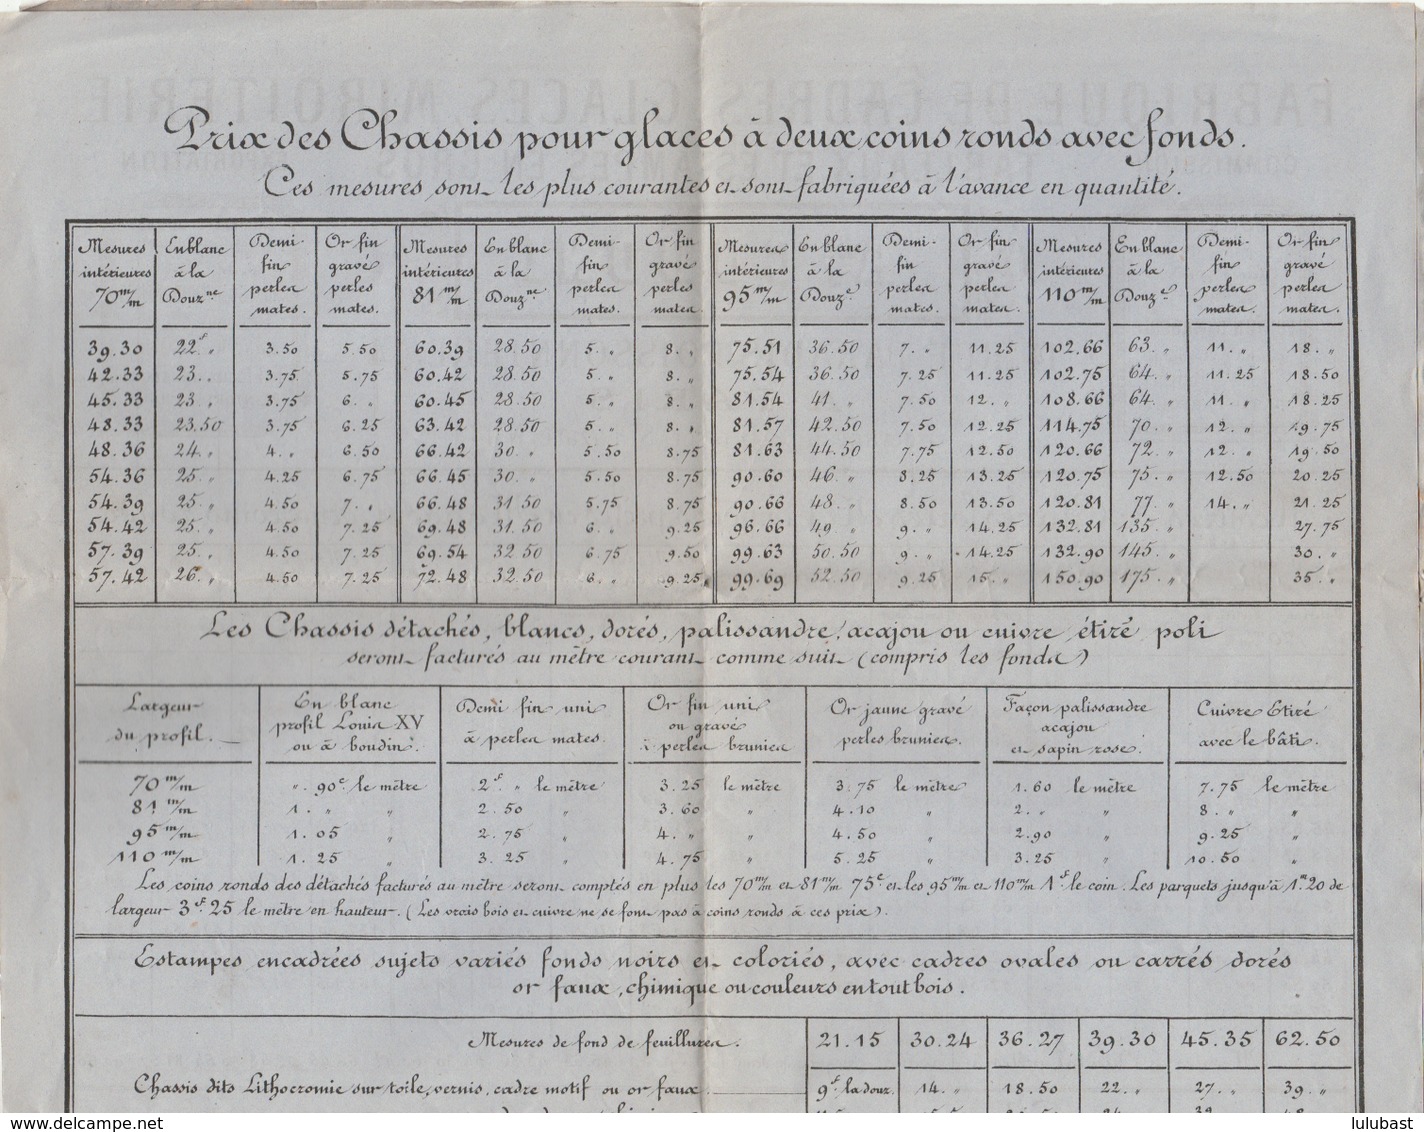 Prix des Chassis pour glaces à deux coins ronds avec fonds.
Ces mesures sont les plus courantes et sont fabriquées à l'avance en quantité.
Mesures intérieures 70 m/m | En blanc à la Douz.ne | Demi-fin perles mates. | Or fin gravé perles mates. | Mesures intérieures 81 m/m | En blanc à la Douz.ne | Demi-fin perles mates. | Or fin gravé perles mates. | Mesures intérieures 95 m/m | En blanc à la Douz.e | Demi-fin perles mates. | Or fin gravé perles mates. | Mesures intérieures 110 m/m | En blanc à la Douz.e | Demi-fin perles mates. | Or fin gravé perles mates.
39.30 | 22f " | 3.50 | 5.50 | 60.39 | 28.50 | 5. " | 8. " | 75.51 | 36.50 | 7. " | 11.25 | 102.66 | 63. " | 11. " | 18. "
42.33 | 23. " | 3.75 | 5.75 | 60.42 | 28.50 | 5. " | 8. " | 75.54 | 36.50 | 7.25 | 11.25 | 102.75 | 64. " | 11.25 | 18.50
45.33 | 23. " | 3.75 | 6. " | 60.45 | 28.50 | 5. " | 8. " | 81.54 | 41. " | 7.50 | 12. " | 108.66 | 64. " | 11. " | 18.25
48.33 | 23.50 | 3.75 | 6.25 | 63.42 | 28.50 | 5. " | 8. " | 81.57 | 42.50 | 7.50 | 12.25 | 114.75 | 70. " | 12. " | 19.75
48.36 | 24. " | 4. " | 6.50 | 66.42 | 30. " | 5.50 | 8.75 | 81.63 | 44.50 | 7.75 | 12.50 | 120.66 | 72. " | 12. " | 19.50
54.36 | 25. " | 4.25 | 6.75 | 66.45 | 30. " | 5.50 | 8.75 | 90.60 | 46. " | 8.25 | 13.25 | 120.75 | 75. " | 12.50 | 20.25
54.39 | 25. " | 4.50 | 7. " | 66.48 | 31.50 | 5.75 | 8.75 | 90.66 | 48. " | 8.50 | 13.50 | 120.81 | 77. " | 14. " | 21.25
54.42 | 25. " | 4.50 | 7.25 | 69.48 | 31.50 | 6. " | 9.25 | 96.66 | 49. " | 9. " | 14.25 | 132.81 | 135. " | 27.75
57.39 | 25. " | 4.50 | 7.25 | 69.54 | 32.50 | 6.75 | 9.50 | 99.63 | 50.50 | 9. " | 14.25 | 132.90 | 145. " | 30. "
57.42 | 26. " | 4.50 | 7.25 | 72.48 | 32.50 | 6. " | 9.25 | 99.69 | 52.50 | 9.25 | 15. " | 150.90 | 175. " | 35. "
Les Chassis détachés, blancs, dorés, palissandre, acajou ou cuivre étiré poli
seront facturés au mètre courant comme suit (compris les fonds)
Largeur du profil. | En blanc profil Louis XV ou à boudin. | Demi fin uni à perles mates. | Or fin uni ou gravé à perles brunies | Or jaune gravé perles brunies. | Façon palissandre acajou et sapin rose. | Cuivre Etiré avec le bâti.
70 m/m | ". 90c le mètre | 2f " le mètre | 3.25 le mètre | 3.75 le mètre | 1.60 le mètre | 7.75 le mètre
81 m/m | 1. " " | 2.50 " | 3.60 " | 4.10 " | 2. " " | 8. " "
95 m/m | 1.05 " | 2.75 " | 4. " " | 4.50 " | 2.90 " | 9.25 "
110 m/m | 1.25 " | 3.25 " | 4.75 " | 5.25 " | 3.25 " | 10.50 "
Les coins ronds des détachés facturés au mètre seront comptés en plus les 70 m/m et 81 m/m 75c et les 95 m/m et 110 m/m 1f le coin. Les parquets jusqu'à 1m20 de
largeur 3f.25 le mètre en hauteur. (Les vrais bois et cuivre ne se font pas à coins ronds à ces prix).
Estampes encadrées sujets variés fonds noirs et coloriés, avec cadres ovales ou carrés dorés
or faux, chimique ou couleurs en tout bois.
Mesures de fond de feuillures. | 21.15 | 30.24 | 36.27 | 39.30 | 45.35 | 62.50
Chassis dits Lithocromie sur toile, vernis, cadre motif ou or faux. | 9f. la douz. | 14. " | 18.50 | 22. " | 27. " | 39. "
lulubast